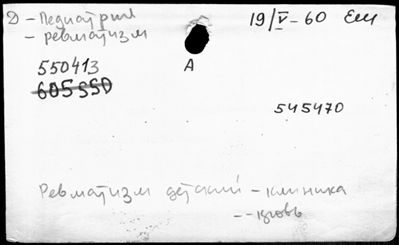 D - Педиатрия 19/V - 60 Еш
- ревматизм
550413 А
605550
545470
Ревматизм детский - клиника
-- кровь